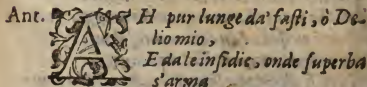 Ant. AH pur lunge da' fasti, ò De-
lio mio,
E da le insidie, onde superba
s'arma